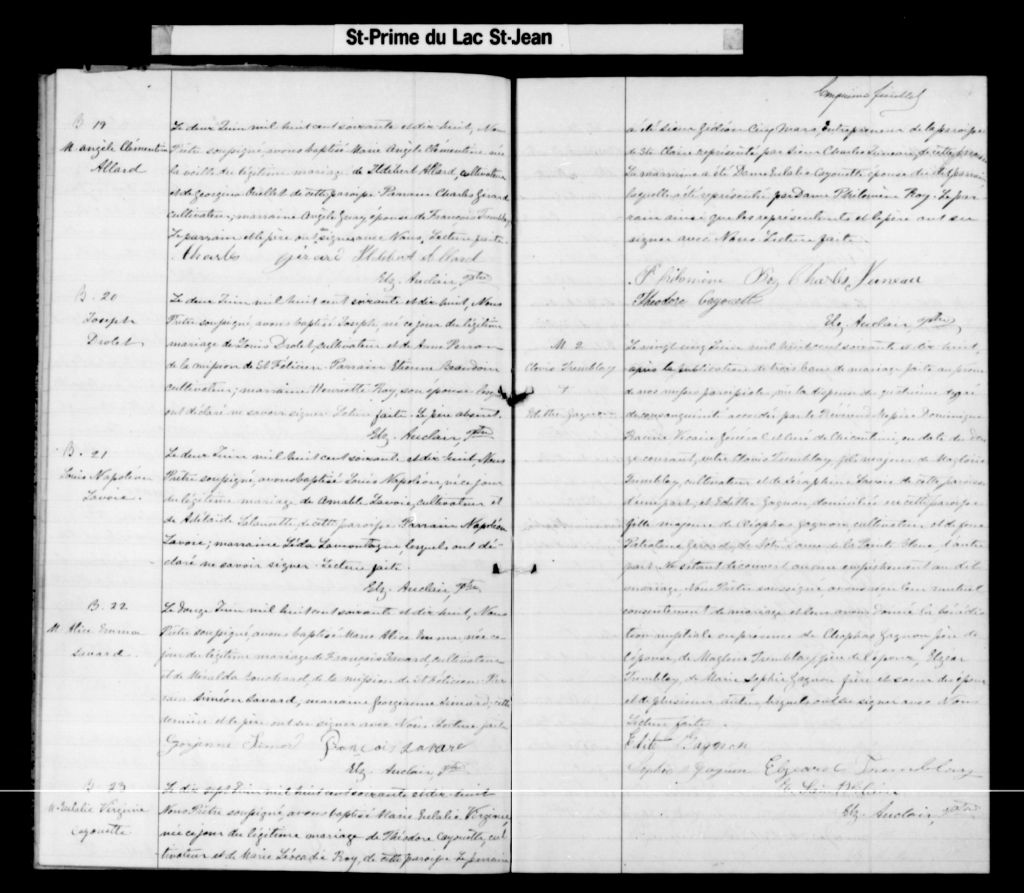 St-Prime du Lac St-Jean
B 19
M. Angèle Clémentine
Allard
Le deux Juin mil huit cent soixante et dix huit, Nous
Prêtre soussigné, avons baptisé Marie Angèle Clémentine née
la veille du légitime mariage de Ildebert Allard, cultivateur
et de Georgina Ouellet de cette paroisse Parrain Charles Gerard
cultivateur; marraine Angèle Guay, épouse de François Tremblay
Le parrain et le père ont signé avec Nous, Lecture faite.
Charles Girard Ildebert Allard
Elz. Auclair, ptre
B. 20
Joseph
Drolet
Le deux Juin mil huit cent soixante et dix huit, Nous
Prêtre soussigné avons baptisé Joseph, né ce jour du légitime
mariage de Louis Drolet, cultivateur et de Anne Perron
de la mission de St Félicien Parrain Etienne Beaudoin
cultivateur; marraine Henriette Roy, son épouse
ont déclaré ne savoir signer. Lecture faite. Le père absent.
Elz. Auclair, ptre
B. 21
Louis Napoléon
Lavoie.
Le deux Juin mil huit cent soixante et dix huit, Nous
Prêtre soussigné, avons baptisé Louis Napoléon, né ce jour
du légitime mariage de Amable Lavoie, cultivateur et
de Adélaïde de cette paroisse Parrain Napoléon
Lavoie; marraine Léda Lamontagne, lesquels ont dé-
claré ne savoir signer. Lecture faite.
Elz. Auclair, ptre
B. 22
M. Alice Emma
Savard.
Le douze Juin mil huit cent soixante et dix huit, Nous
Prêtre soussigné, avons baptisé Marie Alice Emma, née ce
jour du légitime mariage de François Savard, cultivateur
et de Bouchard, de la mission de St Félicien. Par-
rain Siméon Savard, marraine Georgianne Simard; cette
dernière et le père ont su signer avec Nous Lecture faite
Gorjanne Simard François Savard
Elz. Auclair, ptre
B. 23
M. Eulalie Virginie
Cayouette
Le dix sept Juin mil huit cent soixante et dix huit
Nous Prêtre soussigné, avons baptisé Marie Eulalie Virginie
née ce jour du légitime mariage de Théodore Cayouette, cul-
tivateur et de Marie Léocadie Roy, de cette paroisse Le parrain
feuillet
a été sieur Gédéon Cinq Mars, Entrepreneur de la paroisse
de Ste Claire représenté par sieur Charles Juneau, de cette paroisse
La marraine a été Dame Eulalie Cayouette épouse du dit parrain
laquelle a été représentée par Dame Philomène Roy. Le par-
rain ainsi que les représentants et le père ont su
signer avec Nous Lecture faite.
Philomène Roy Charles Juneau
Théodore Cayouette
Elz. Auclair, ptre
M. 2
Clovis Tremblay
+
Edithe Gagnon
Le vingt cinq Juin mil huit cent soixante et dix huit,
après la publication de trois bans de mariage faite au prône
de nos messes paroissiales; vu la dispense du quatrième degré
de consanguinité accordée par le Révérend Messire Dominique
Racine Vicaire Général et curé de Chicoutimi, en date du
courant, entre Clovis Tremblay, fils majeur de Magloire
Tremblay, cultivateur et de Séraphine Savoie de cette paroisse
d'une part; et Edithe Gagnon, domiciliée en cette paroisse
fille majeure de Cléophas Gagnon, cultivateur, et de feue
Gerard, de Notre Dame de la d'autre
part. Ne s'étant découvert aucun empêchement au dit
mariage, Nous Prêtre soussigné, avons reçu leur mutuel
consentement de mariage et leur avons donné la bénédic-
tion nuptiale en présence de Cléophas Gagnon père de
l'épouse, de Magloire Tremblay, père de l'époux, Elzéar
Tremblay, de Marie Sophie Gagnon frère et soeur des époux
et de plusieurs autres lesquels ont su signer avec Nous
Lecture faite.
Edite Gagnon
Sophie Gagnon Elzeard Tremblay
Elz. Auclair, ptre